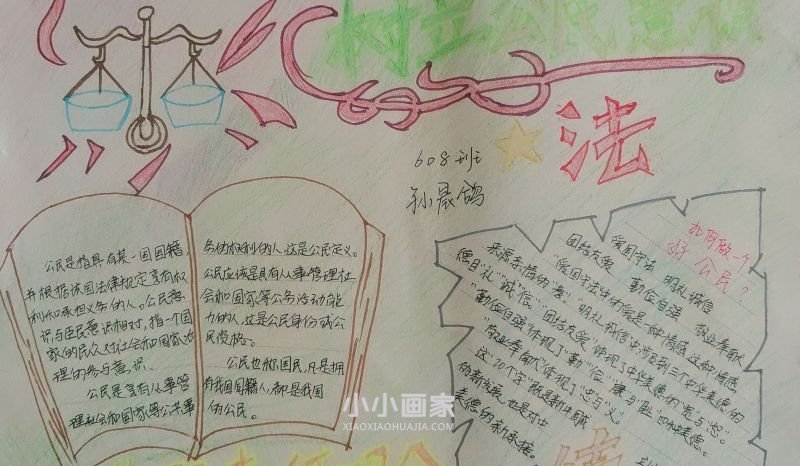 树立公民意识
法
608班
孙晟鸽
公民是指具有某一国国籍,
并根据该国法律规定享有权
利和承担义务的人。公民意
识与臣民意识相对,指一个国
家的民众对社会和国家治
理的参与意识。
公民是享有从事管
理社会和国家等公共事
务的权利的人,这是公民定义。
公民应该是具有从事管理社
会和国家等公务活动能
力的人,这是公民身份或公
民资格。
公民也称国民,凡是拥
有我国国籍人,都是我国
的公民。
如何做一个
好公民?
爱国守法 明礼诚信
团结友爱 勤俭自强 敬业奉献
"爱国守法"体的爱是一种情感,这种情感
来源亲情的"孝"
"明礼诚信"
德目"礼""诚""信"
"团结友爱"体现了中华美德的
"勤俭自强"体现了"勤""俭"
"敬业奉献"体现了"忠"与"义"。
这"20个字"
的新发展,也是对中
美德的新承接。
小小画家
XIAOXIAOHUAJIA.COM